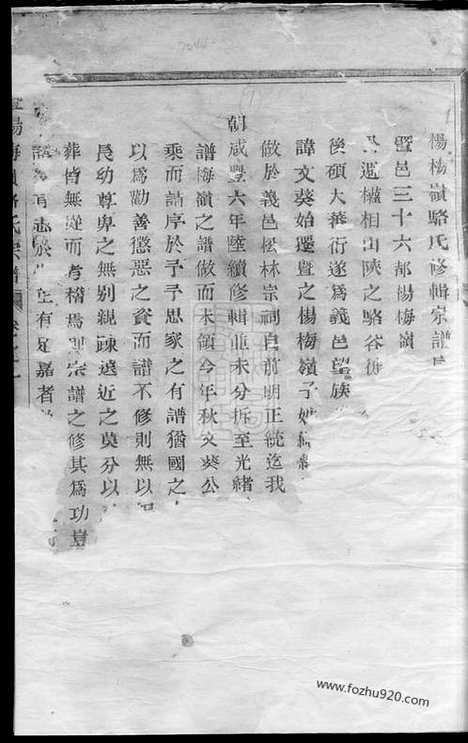 楊梅嶺駱氏修輯家譜
暨邑三十六都楊梅嶺
避權相由陝之駱谷
後碩大蕃衍遂爲義邑望族
諱文葵始遷暨之楊梅嶺子
倣於義邑松林宗祠自前明正統迄我
朝咸豐六年陸續修輯並未分拆至光緒
譜梅嶺之譜倣而未領今年秋文葵公
乘而請序於予予思家之有譜猶國之
以爲勸善懲惡之資而譜不修則無以
長幼尊卑之無別親疎遠近之莫分以
葬皆無從而考稽焉則宗譜之修其爲功豈
有志於
有足嘉者
暨陽梅嶺駱氏宗譜
www.fozhu920.com